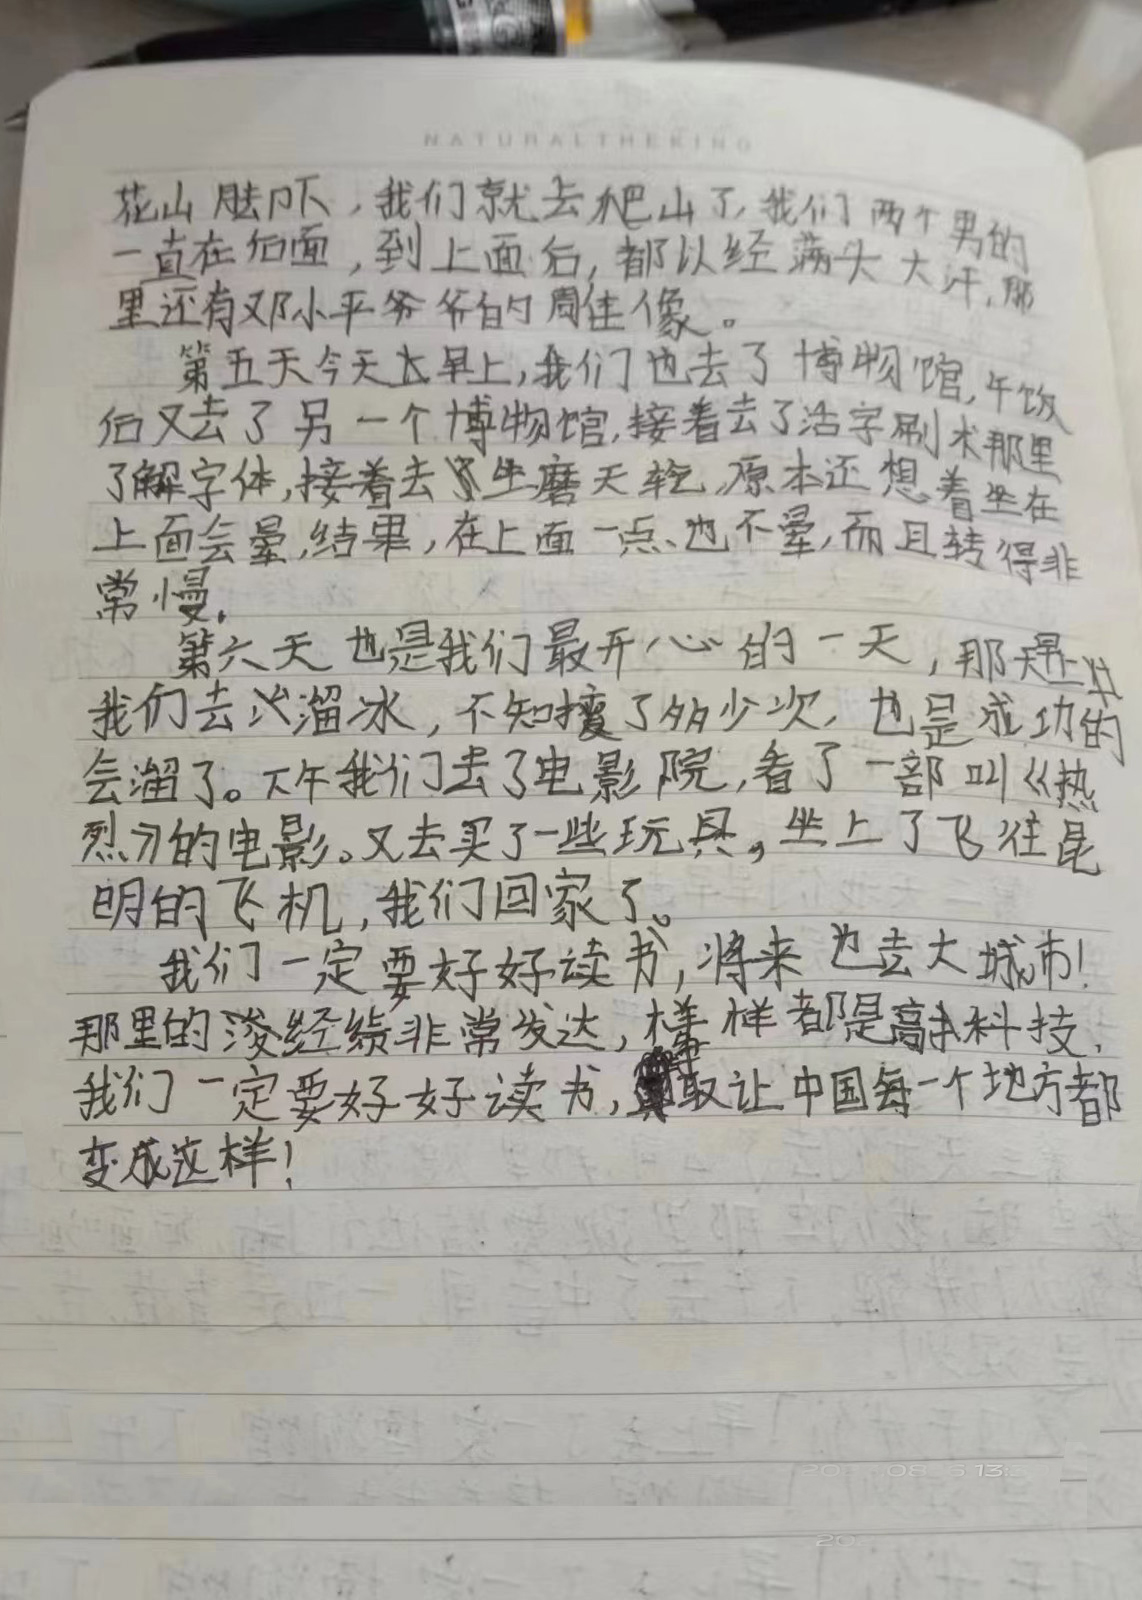 NATURALTHEKING
花山脚下，我们就去爬山了，我们两个男的
一直在后面，到上面后，都以经满头大汗，那
里还有邓小平爷爷的周佳像。
第五天今天太早上，我们也去了博物馆，午饭
后又去了另一个博物馆，接着去了活字刷术那里
了解字体，接着去了坐磨天轮，原本还想着坐在
上面会晕，结果，在上面一点也不晕，而且转得非
常慢。
第六天也是我们最开心的一天，那天早上
我们去溜冰，不知撞了多少次，也是成功的
会溜了。下午我们去了电影院，看了一部叫《热
烈》的电影。又去买了一些玩具，坐上了飞往昆
明的飞机，我们回家了。
我们一定要好好读书，将来也去大城市！
那里的经绩非常发达，样样都是高科技，
我们一定要好好读书，争取让中国每一个地方都
变成这样！